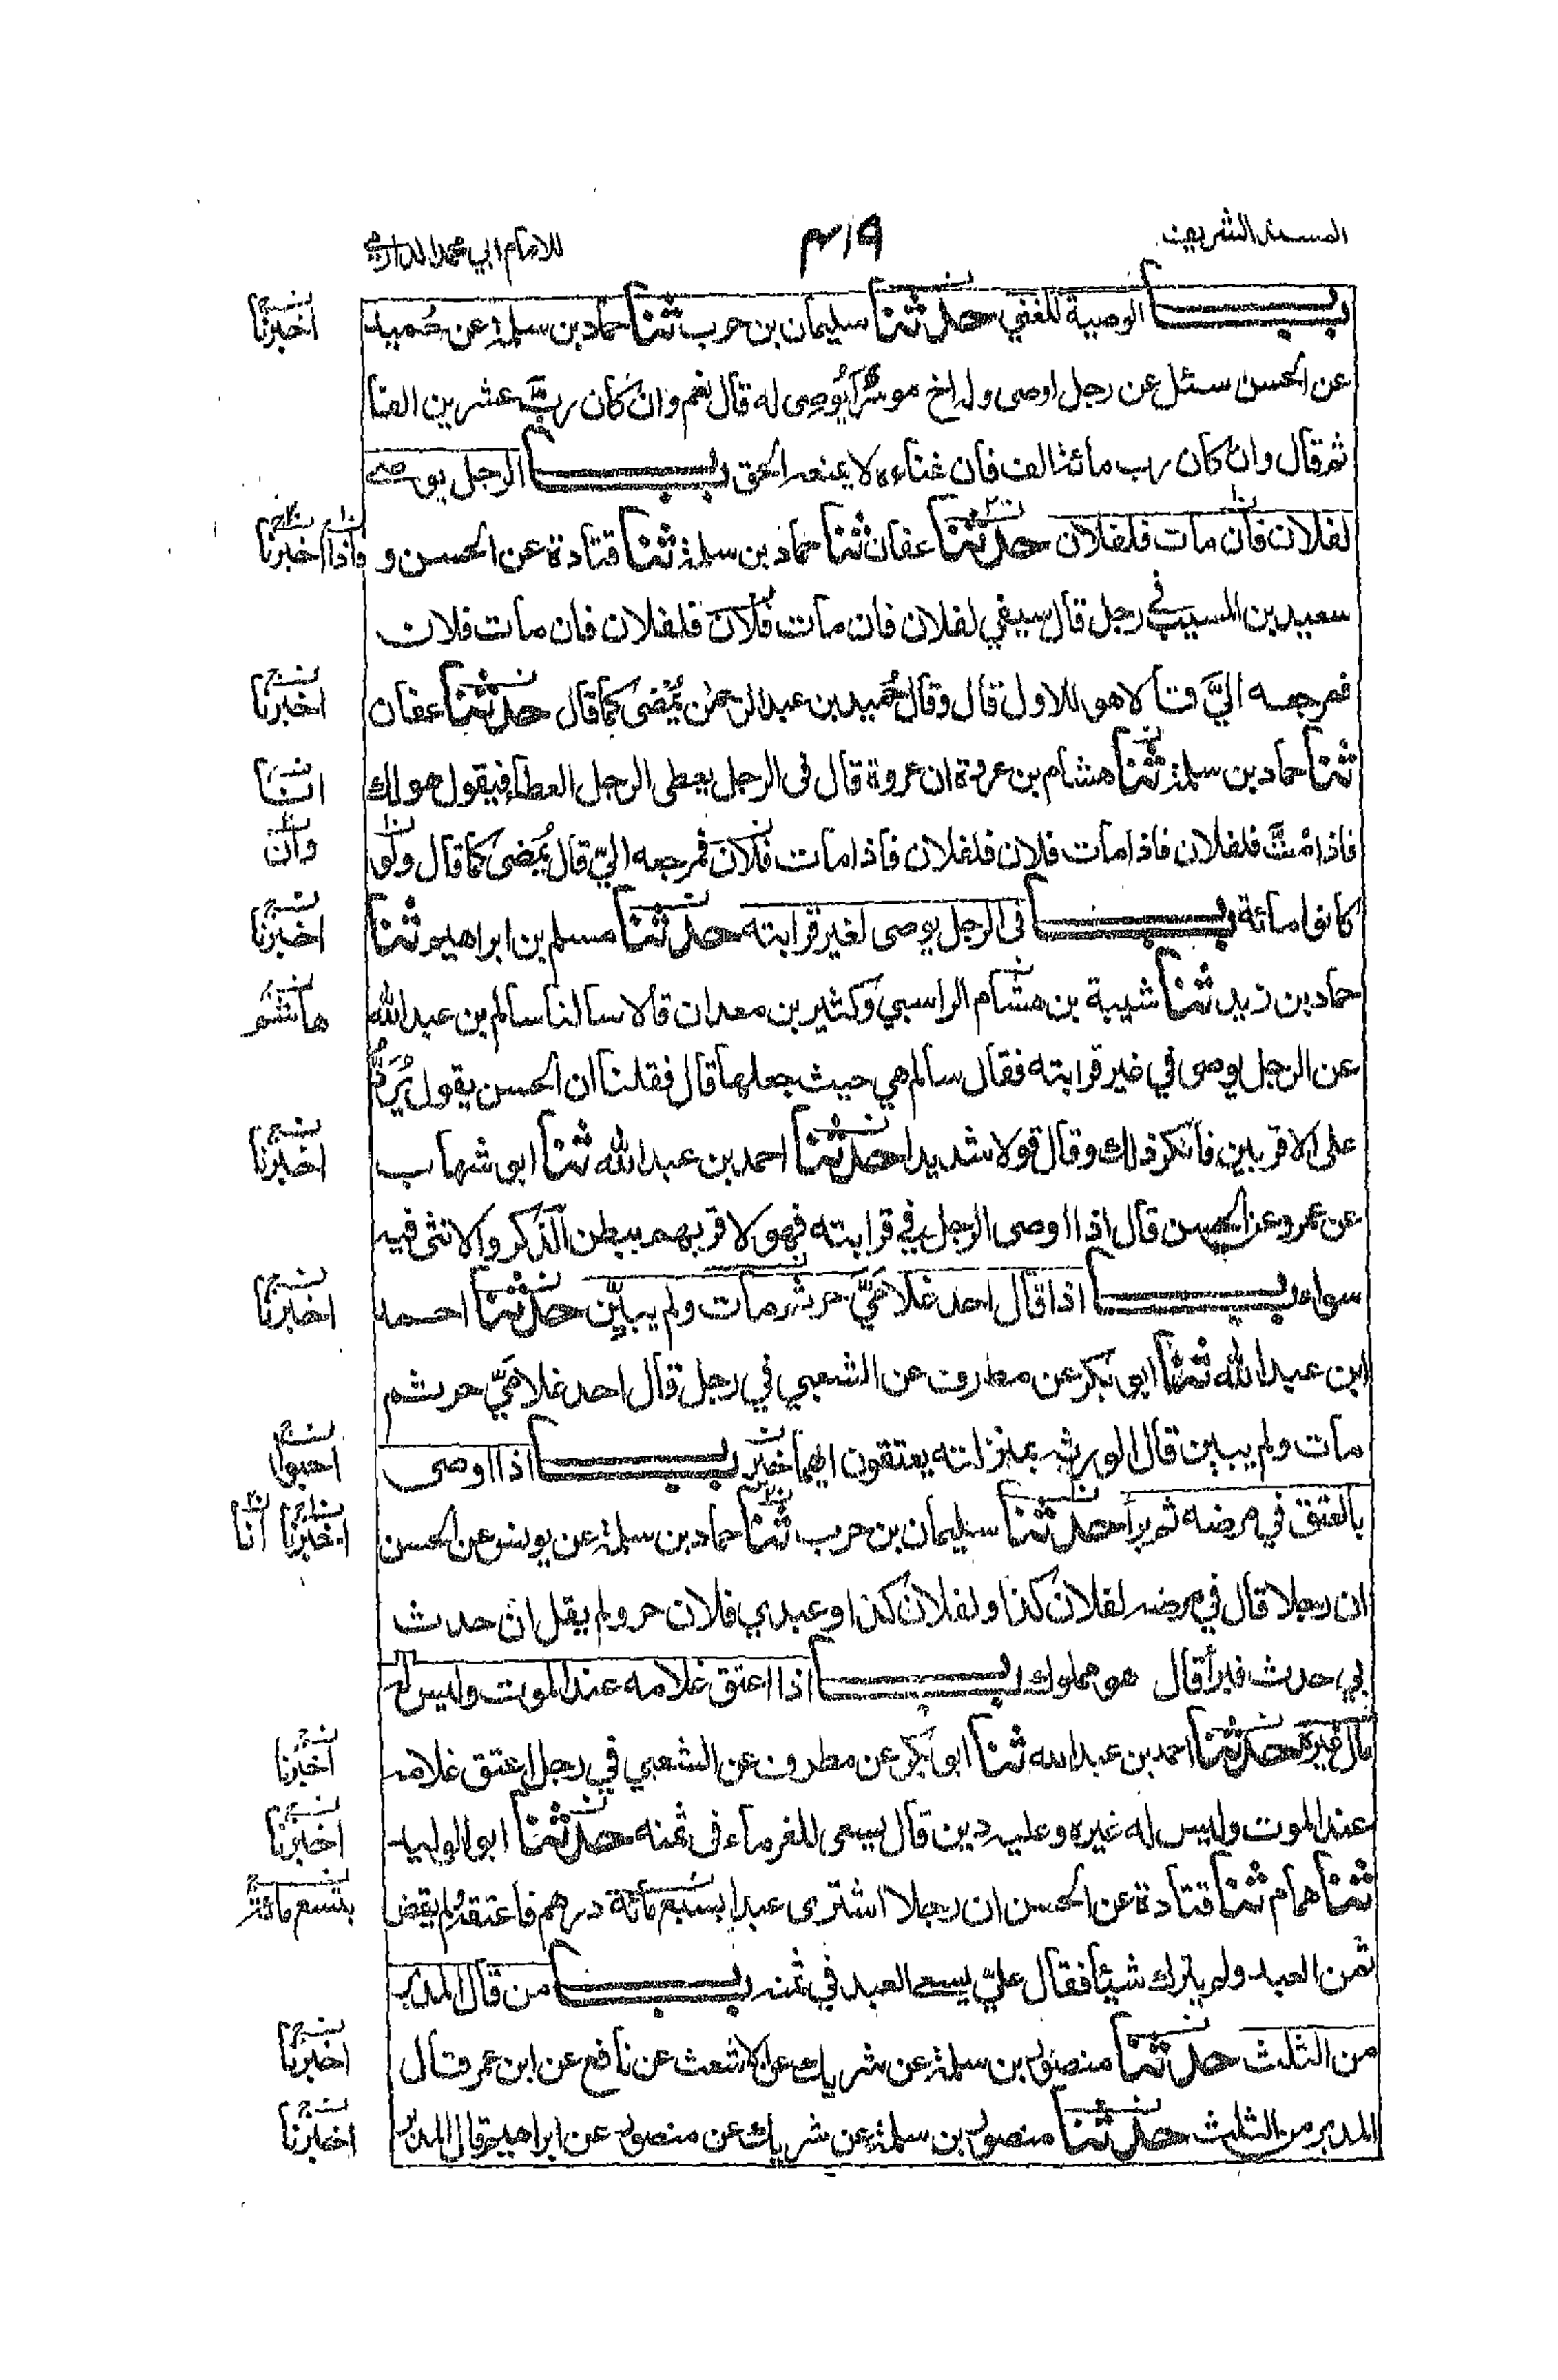 المسند الشريف
٤١٩
للامام ابي محمد الدارمي
باب الوصية للغني حدثنا سليمان بن حرب ثنا حماد بن سلمة عن حميد
نسخ اخبرنا
عن الحسن سئل عن رجل اوصى وله اخ موسر ايوصى له قال نعم وان كان رب عشرين الفا
ثم قال وان كان رب مائة الف فان غناءه لا يمنعه الحق باب الرجل يوصي
لفلان فان مات فلفلان حدثنا عفان ثنا حماد بن سلمة ثنا قتادة عن الحسن و
فاذا نسخ اخبرنا
سعيد بن المسيب في رجل قال سيفي لفلان فان مات فلان فلفلان فان مات فلان
فمرجعه اليّ قالا هو للاول قال وقال حميد بن عبد الرحمن يُمْضى كما قال حدثنا عفان
نسخ اخبرنا
ثنا حماد بن سلمة ثنا هشام بن عروة ان عروة قال في الرجل يعطي الرجل العطاء فيقول هو لك
انبا
فاذا مُتَّ فلفلان فاذا مات فلان فلفلان فاذا مات فلان فمرجعه اليّ قال يُمضى كما قال ولو
وان
كانوا مائة باب في الرجل يوصى لغير قرابته حدثنا مسلم بن ابراهيم ثنا
نسخ اخبرنا
حماد بن زيد ثنا شيبة بن هشام الراسبي وكثير بن معدان قالا سالنا سالم بن عبد الله
هاشم
عن الرجل يوصى في غير قرابته فقال سالم هي حيث جعلها قال فقلنا ان الحسن يقول يُرَدُّ
على الاقربين فانكر ذلك وقال قولا شديدا حدثنا احمد بن عبد الله ثنا ابو شهاب
نسخ اخبرنا
عن عمرو عن الحسن قال اذا اوصى الرجل في قرابته فهو لاقربهم ببطن الذكر والانثى فيه
سواء باب اذا قال احد غلامَيَّ حر ثم مات ولم يبيّن حدثنا احمد
نسخ اخبرنا
ابن عبد الله ثنا ابو بكر عن مطرف عن الشعبي في رجل قال احد غلاميّ حر ثم
مات ولم يبين قال الورثة بمنزلته يعتقون ايهما باب اذا اوصى
نسخ احبوا
بالعتق في مرضه ثم برأ حدثنا سليمان بن حرب ثنا حماد بن سلمة عن يونس عن الحسن
نسخ اخبرنا انا
ان رجلا قال في مرضه لفلان كذا ولفلان كذا وعبدي فلان حر ولم يقل ان حدث
بي حدث فبرأ قال هو مملوك باب اذا اعتق غلامه عند الموت وليس له
مال غيره حدثنا احمد بن عبد الله ثنا ابو بكر عن مطرف عن الشعبي في رجل اعتق غلامه
نسخ اخبرنا
عند الموت وليس له غيره وعليه دين قال يسعى للغرماء في ثمنه حدثنا ابو الوليد
نسخ اخبرنا
ثنا همام ثنا قتادة عن الحسن ان رجلا اشترى عبدا بسبع مائة درهم فاعتقه ولم يقض
بتسع مائة
ثمن العبد ولم يترك شيئا فقال عليّ يسعى العبد في ثمنه باب من قال المدبر
من الثلث حدثنا منصور بن سلمة عن شريك عن الاشعث عن نافع عن ابن عمر قال
نسخ اخبرنا
المدبر من الثلث حدثنا منصور بن سلمة عن شريك عن منصور عن ابراهيم قال المدبر
نسخ اخبرنا